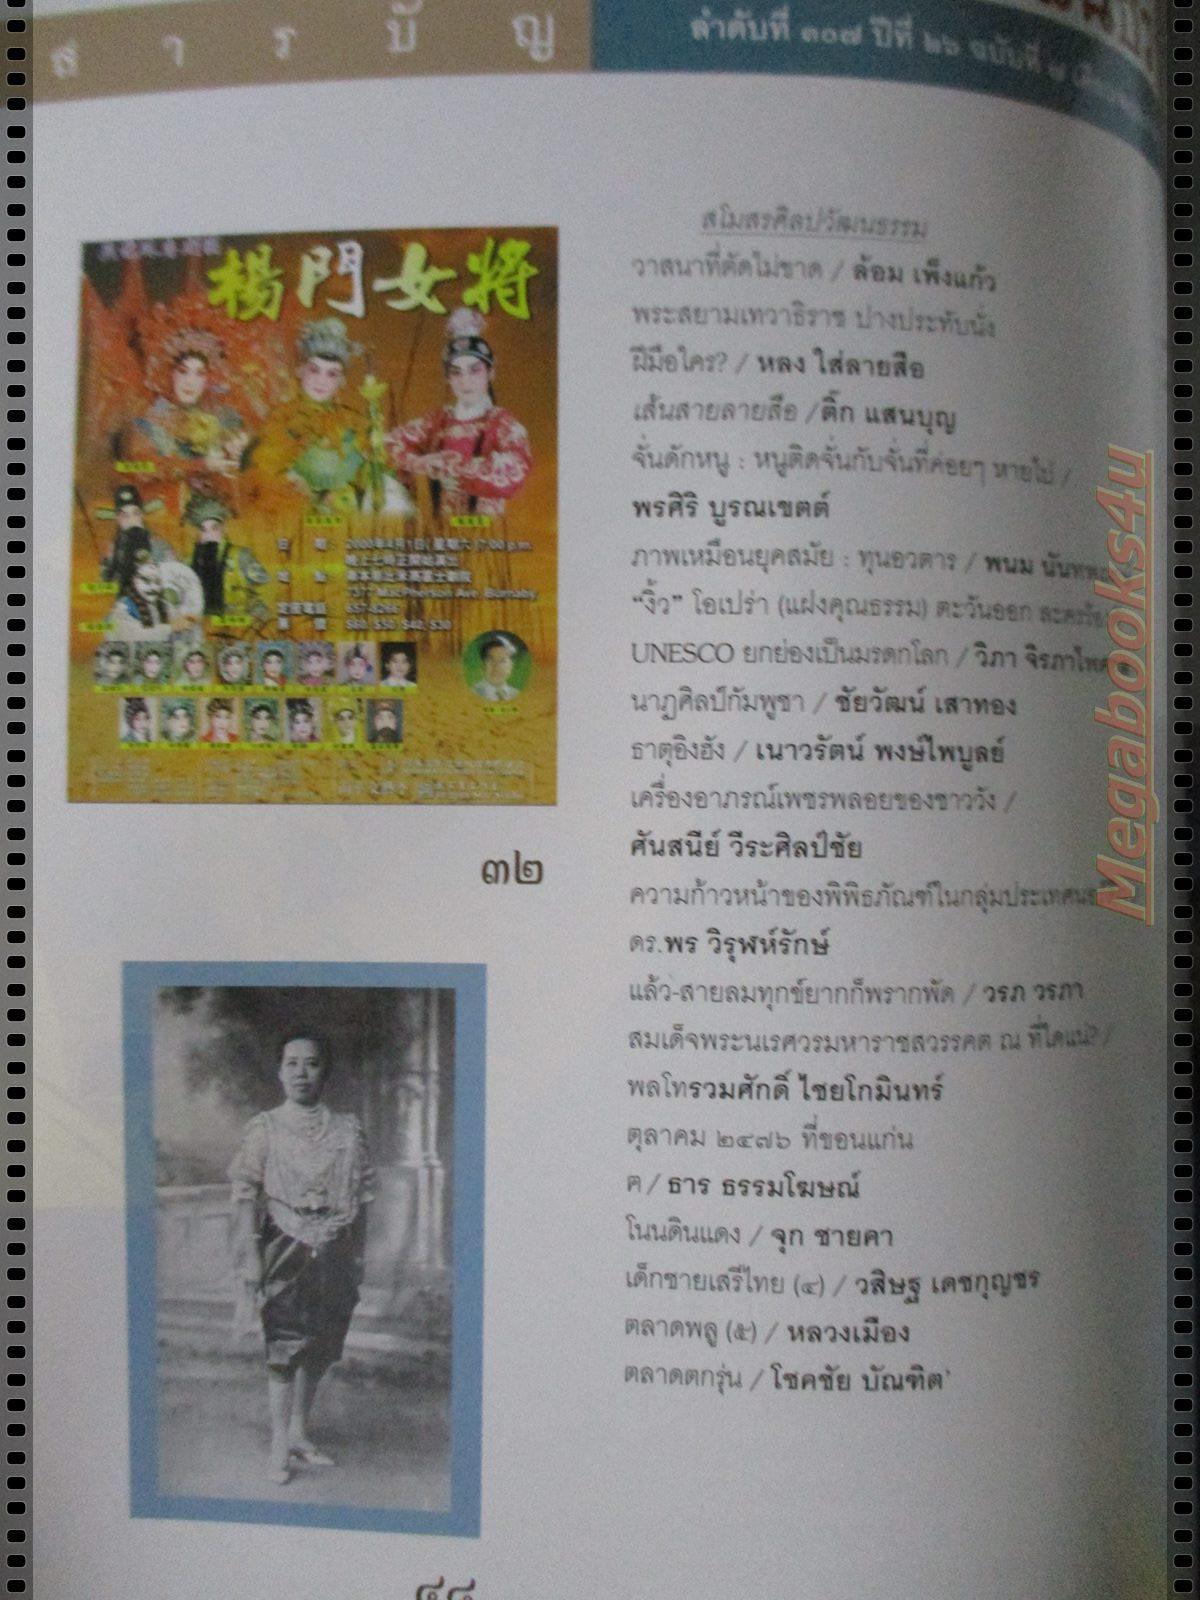 สารบัญ
ลำดับที่ ๓๐๗ ปีที่ ๒๖ ฉบับที่ ๗
楊門女將
日期: 2000年4月1日(星期六)7:00 p.m.
7377 MacPherson Ave. Burnaby
657-8266
$60, $50, $40, $30
๓๒
สโมสรศิลปวัฒนธรรม
วาสนาที่ตัดไม่ขาด / ล้อม เพ็งแก้ว
พระสยามเทวาธิราช ปางประทับนั่ง
ฝีมือใคร? / หลง ใส่ลายสือ
เส้นสายลายสือ / ติ๊ก แสนบุญ
จั่นดักหนู : หนูติดจั่นกับจั่นที่ค่อยๆ หายไป /
พรศิริ บูรณเขตต์
ภาพเหมือนยุคสมัย : ทุนอวตาร / พนม
“งิ้ว” โอเปร่า (แฝงคุณธรรม) ตะวันออก
UNESCO ยกย่องเป็นมรดกโลก / วิภา
นาฏศิลป์กัมพูชา / ชัยวัฒน์ เสาทอง
ธาตุอิงฮัง / เนาวรัตน์ พงษ์ไพบูลย์
เครื่องอาภรณ์เพชรพลอยของชาววัง /
ศันสนีย์ วีระศิลป์ชัย
ความก้าวหน้าของพิพิธภัณฑ์ในกลุ่มประเทศ
ดร.พร วิรุฬห์รักษ์
แล้ว-สายลมทุกข์ยากก็พรากพัด / วรภ วรภา
สมเด็จพระนเรศวรมหาราชสวรรคต ณ ที่ใดแน่? /
พลโทรวมศักดิ์ ไชยโกมินทร์
ตุลาคม ๒๔๗๖ ที่ขอนแก่น
ฅ / ธาร ธรรมโฆษณ์
โนนดินแดง / จุก ชายคา
เด็กชายเสรีไทย (๔) / วสิษฐ เดชกุญชร
ตลาดพลู (๕) / หลวงเมือง
ตลาดตกรุ่น / โชคชัย บัณฑิต'
Megabooks4u